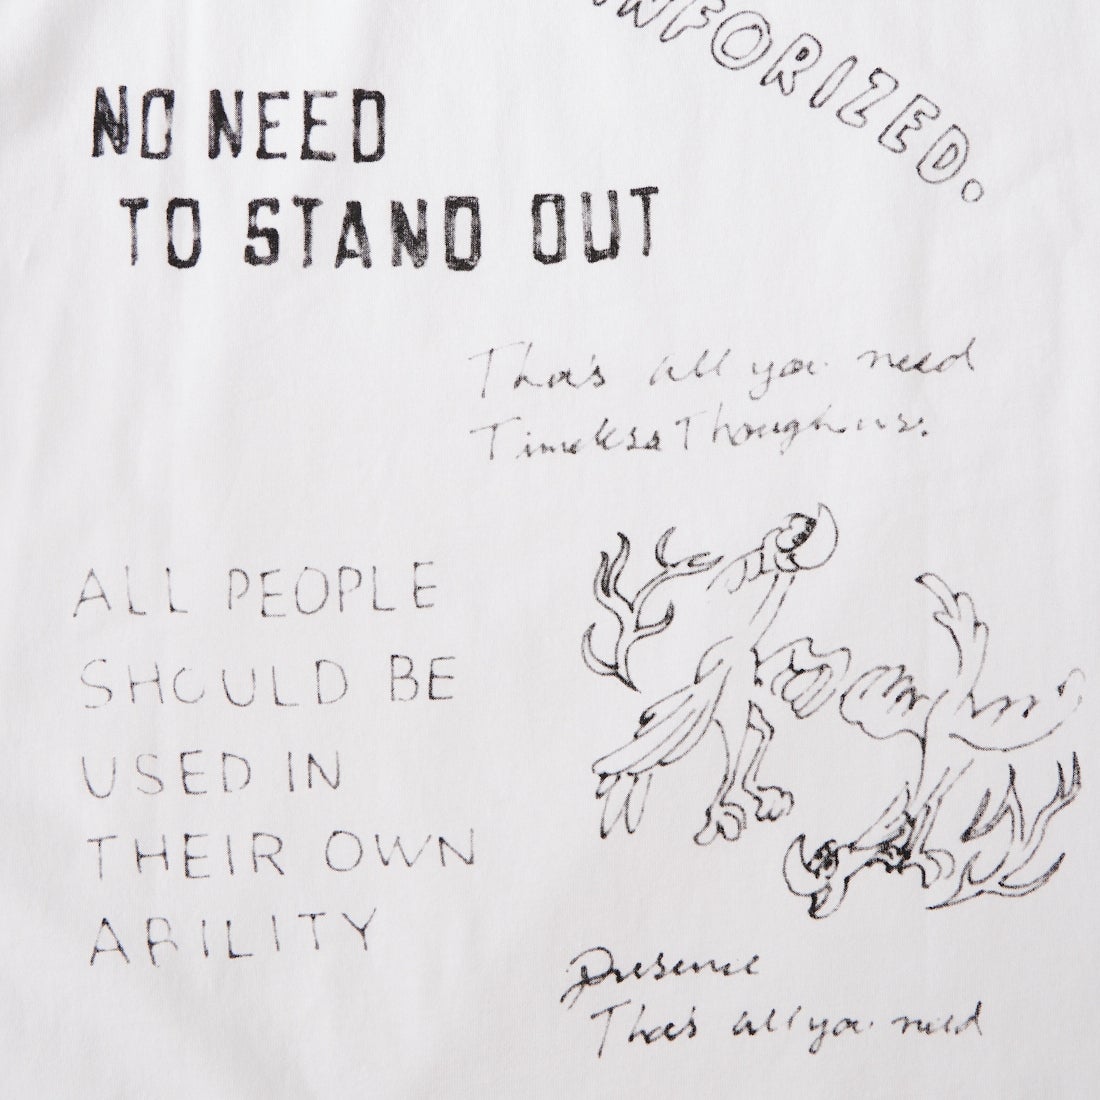 NFORIZED.
NO NEED
TO STAND OUT
Tha's all you need
Timeless Though
ALL PEOPLE
SHOULD BE
USED IN
THEIR OWN
ABILITY
Presence
Tha's all you need